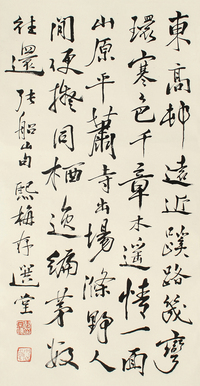 東高邨遠近蹊路幾彎
環寒色千章木遥情一面
山原平蕭寺出場滌野人
閒便擬同栖迤編茅数
往還 张船山句 熙梅存 選堂